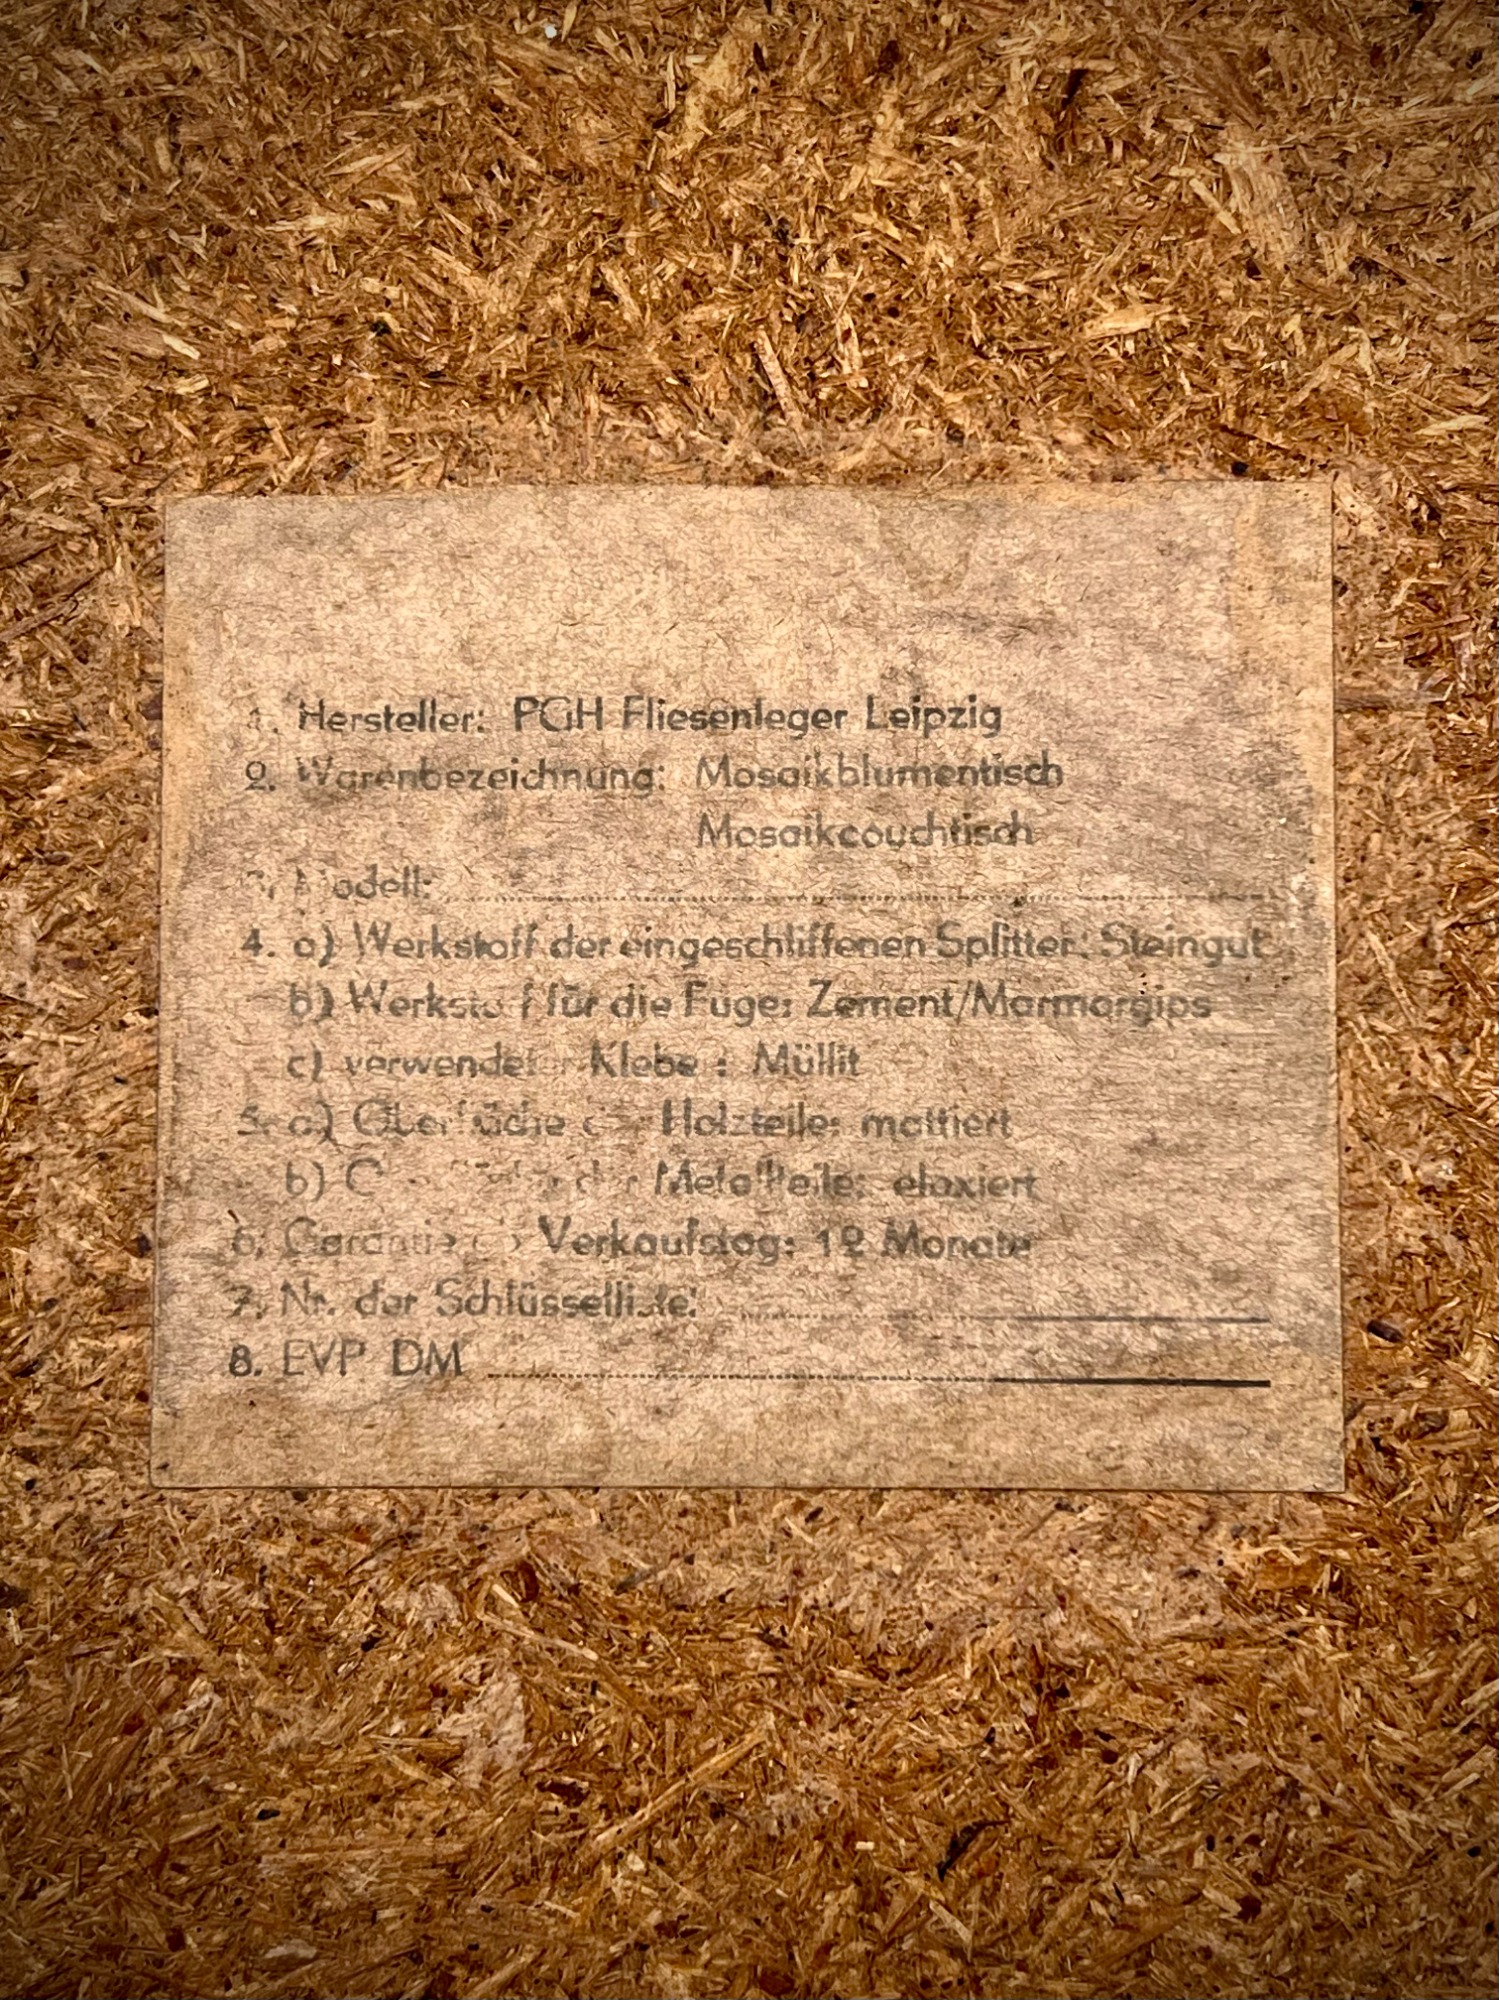 1. Hersteller: PGH Fliesenleger Leipzig
2. Warenbezeichnung: Mosaikblumentisch
Mosaikcouchtisch
3. Modell:
4. a) Werkstoff der eingeschliffenen Splitter: Steingut
b) Werkstoff für die Fuge: Zement/Marmorgips
c) verwendeter Kleber: Müllit
5. a) Oberfläche der Holzteile: mattiert
b) der Metallteile: eloxiert
6. Garantie ab Verkaufstag: 12 Monate
7. Nr. der Schlüsselliste:
8. EVP DM